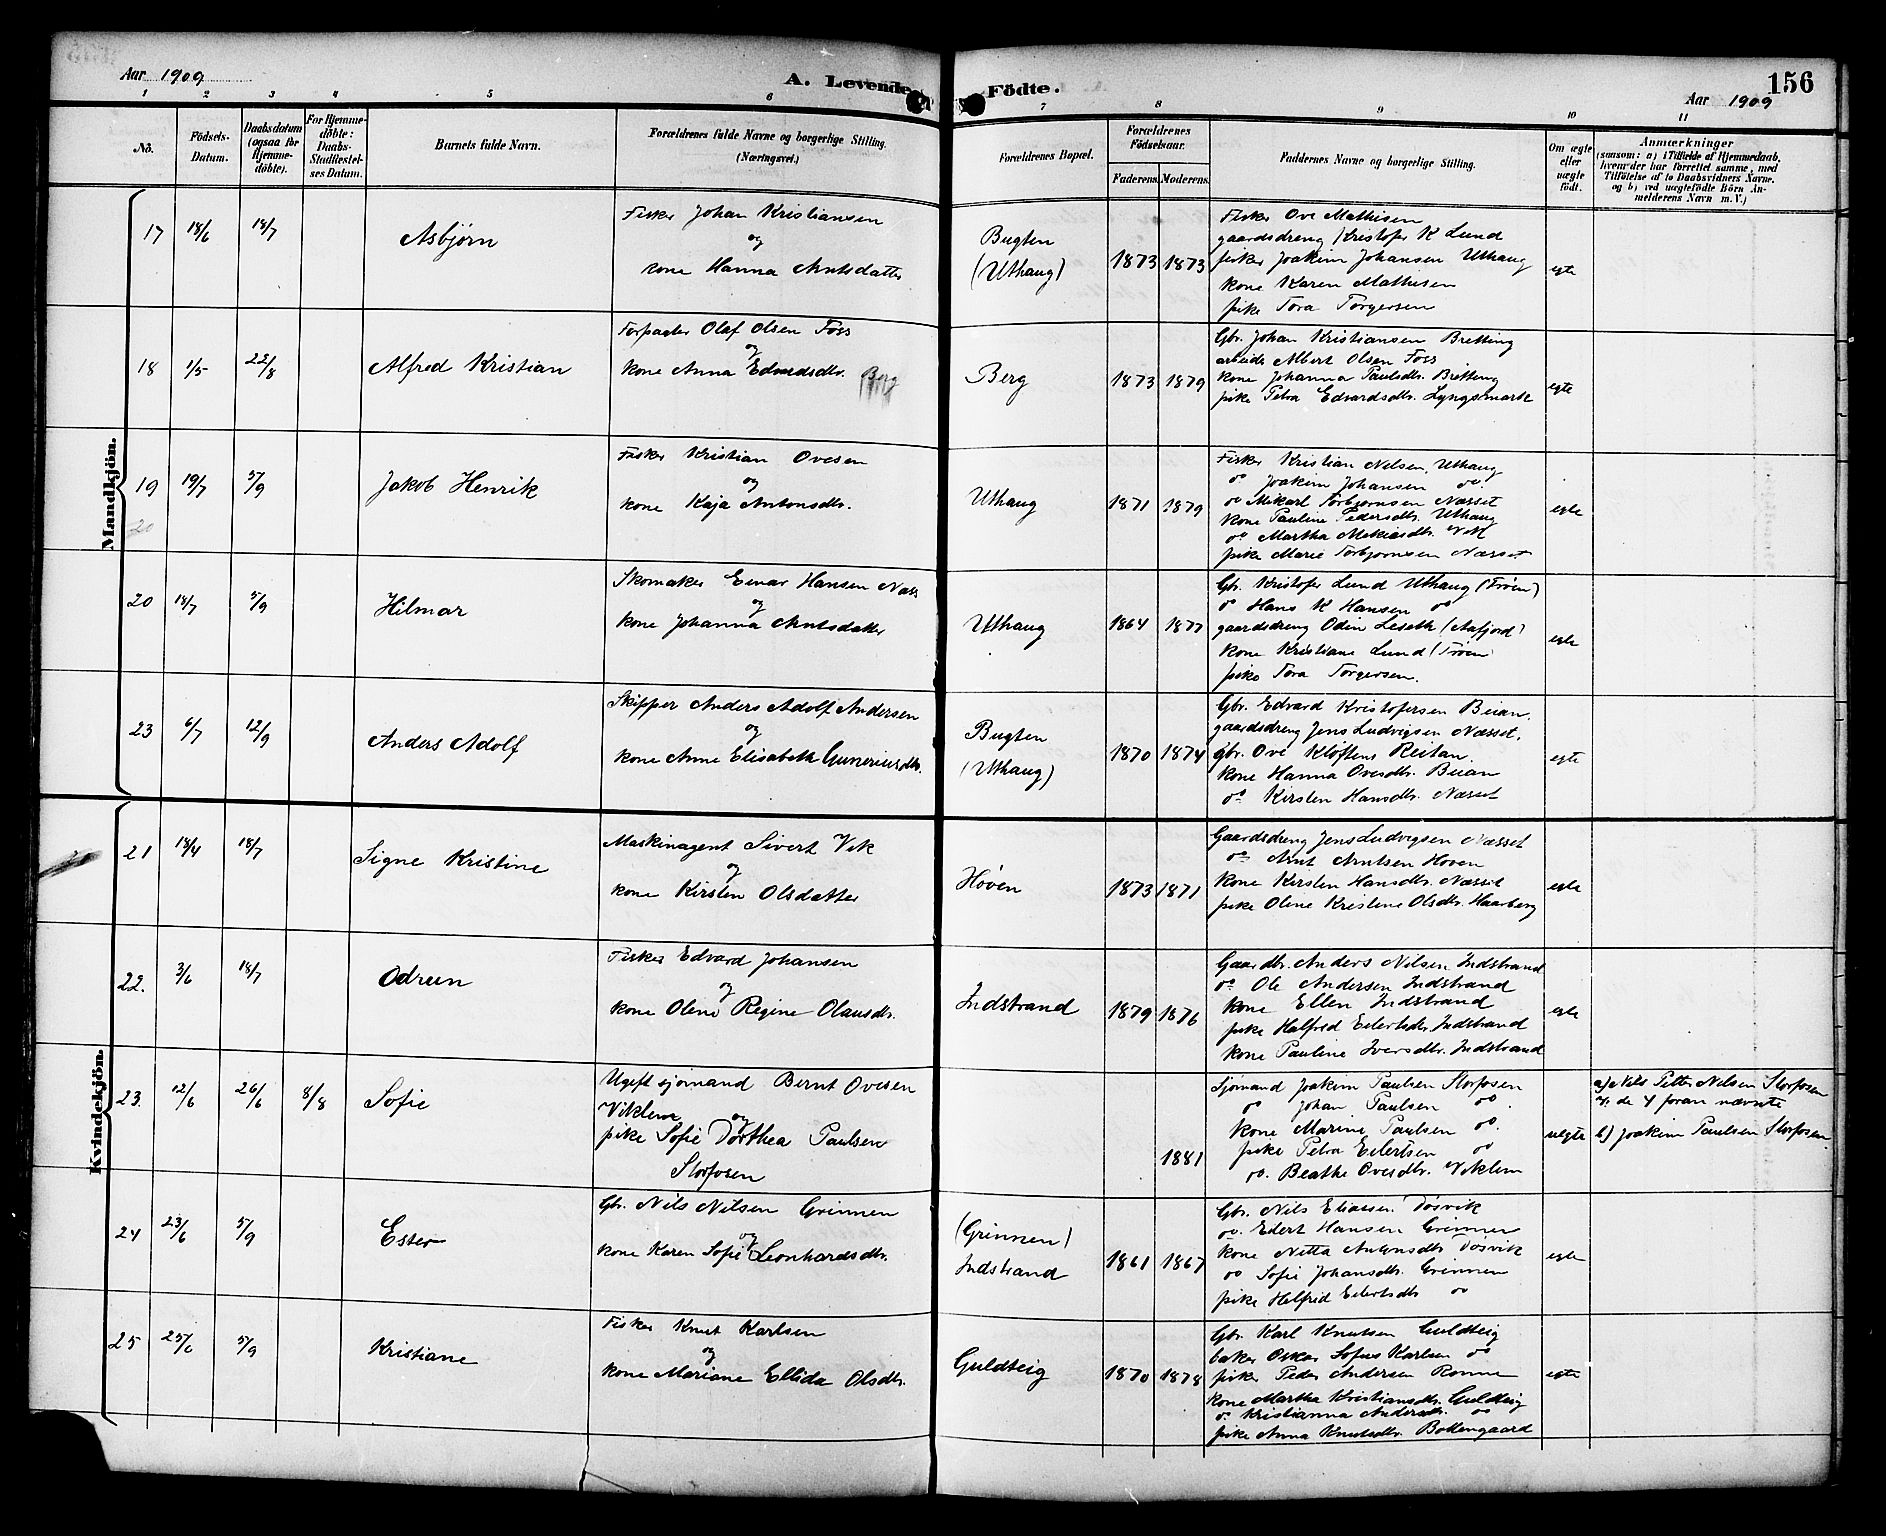 Aar 1909
A. Levende Födte.
156
Aar 1909
1 2 3 4 5 6 7 8 9 10 11
No.
Födsels-Datum.
Daabsdatum (ogsaa for Hjemme-döbte).
For Hjemme-döbte: Daabs-Stadfæstel-ses Datum.
Barnets fulde Navn.
Forældrenes fulde Navne og borgerlige Stilling. (Næringsvei.)
Forældrenes Bopæl.
Forældrenes Födselsaar.
Faderens.
Moderens.
Faddernes Navne og borgerlige Stilling.
Om ægte eller uægte født.
Anmærkninger
(saasom: a) i Tilfælde af Hjemmedaab, hvem der har forrettet samme, med Tilföielse af to Daabsvidners Navne, og b) ved uægtefödte Börn Anmelderens Navn m. V.)
Mandkjön.
17 18/6 18/7 Asbjørn
Fisker Johan Kristiansen
og
kone Hanna Arntsdatter
Bugten
(Uthaug)
1873 1873
Fisker Ove Mathisen
gaardsdreng Kristofer K Lund
fisker Joakim Johansen Uthaug
kone Karen Mathisen
pike Tora Torgersen
egte
18 1/5 22/8 Alfred Kristian
Forpagter Olaf Olsen Foss
og
kone Anna Edvardsdtr. Berg
Berg
1873 1879
Gbr. Johan Kristiansen Bretting
arbeider Albert Olsen Foss
kone Johanna Paulsdtr. Bretting
pike Petra Edvardsdtr. Lyngsmark
egte
19 19/7 5/9 Jakob Henrik
20
Fisker Kristian Ovesen
og
kone Kaja Antonsdtr.
Uthaug
1871 1879
Fisker Kristian Nilsen, Uthaug
do Joakim Johansen do
do Mikarl Torbjørnsen Næsset
kone Pauline Pedersdtr. Uthaug
do Martha Mikiasdtr. Vik
pike Marie Torbjørnsen Næsset
egte
20 18/7 5/9 Hilmar
Skomaker Einar Hansen Næss
og
kone Johanna Arntsdatter
Uthaug
1864 1877
Gbr. Kristofer Lund Uthaug (Trøen)
do Hans K Hansen do
gaardsdreng Odin Leseth (Aafjord)
kone Kristiane Lund (Trøen)
pike Tora Torgersen.
egte
23 6/7 12/9 Anders Adolf
Skipper Anders Adolf Andersen
og
kone Anne Elisabeth Guneriusdtr.
Bugten
(Uthaug)
1870 1874
Gbr. Edvard Kristofersen Beian.
gaardsdreng Jens Ludvigsen Næsset.
gbr. Ove Kløften Reitan.
kone Hanna Ovesdtr. Beian
do Kirsten Hansdtr. Næsset
egte
Kvindekjön.
21 18/4 18/7 Signe Kristine
Maskinagent Sivert Vik
og
kone Kirsten Olsdatter
Høven
1873 1871
Gaardsdreng Jens Ludvigsen Næsset
do Arnt Arntsen Hoven
kone Kirsten Hansdtr. Næsset
pike Oline Kristine Olsdtr. Haarberg
egte
22. 3/6 18/7 Odrun
Fisker Edvard Johansen
og
kone Oline Regine Olausdtr.
Indstrand
1879 1876
Gaardbr. Anders Nilsen Indstrand
do Ole Andersen Indstrand
kone Ellen Indstrand
pike Halfrid Eilertsdtr Indstrand
kone Pauline Iversdtr. Indstrand
egte
23. 12/6 26/6 8/8 Sofie
Ugift sjømand Bernt Ovesen
Viklem
og
pike Sofie Dorthea Paulsen
Storfosen
1881
Sjømand Joakim Paulsen Storfosen
do Johan Paulsen do.
kone Marine Paulsen do.
pike Petra Eilertsen do
do. Beathe Ovesdtr. Viklem
uegte
a) Nils Petter Nilsen Storfosen
de 4 foran nævnte
b) Joakim Paulsen Storfosen.
24 23/6 5/9 Ester
Gbr. Nils Nilsen Grinnen
og
kone Karen Sofie Leonhardsdtr.
(Grinnen)
Indstrand
1861 1867
Gbr. Nils Eliassen Døsvik
do. Edert Hansen Grinnen
kone Netta Antonsdtr Døsvik
do Sofie Johansdtr. Grinnen
pike Helfrid Eilertsdtr do
egte
25 25/6 5/9 Kristiane
Fisker Knut Karlsen
og
kone Mariane Ellida Olsdtr.
Guldteig
1870 1878
Gbr. Karl Knutsen Guldteig
baker Oskar Sofus Karlsen do
fisker Peder Andersen Rønne
kone Martha Kristiansdtr Guldteig
do. Kristianna Andersdtr. do
pike Anna Knutsdtr. Bottengaard
egte